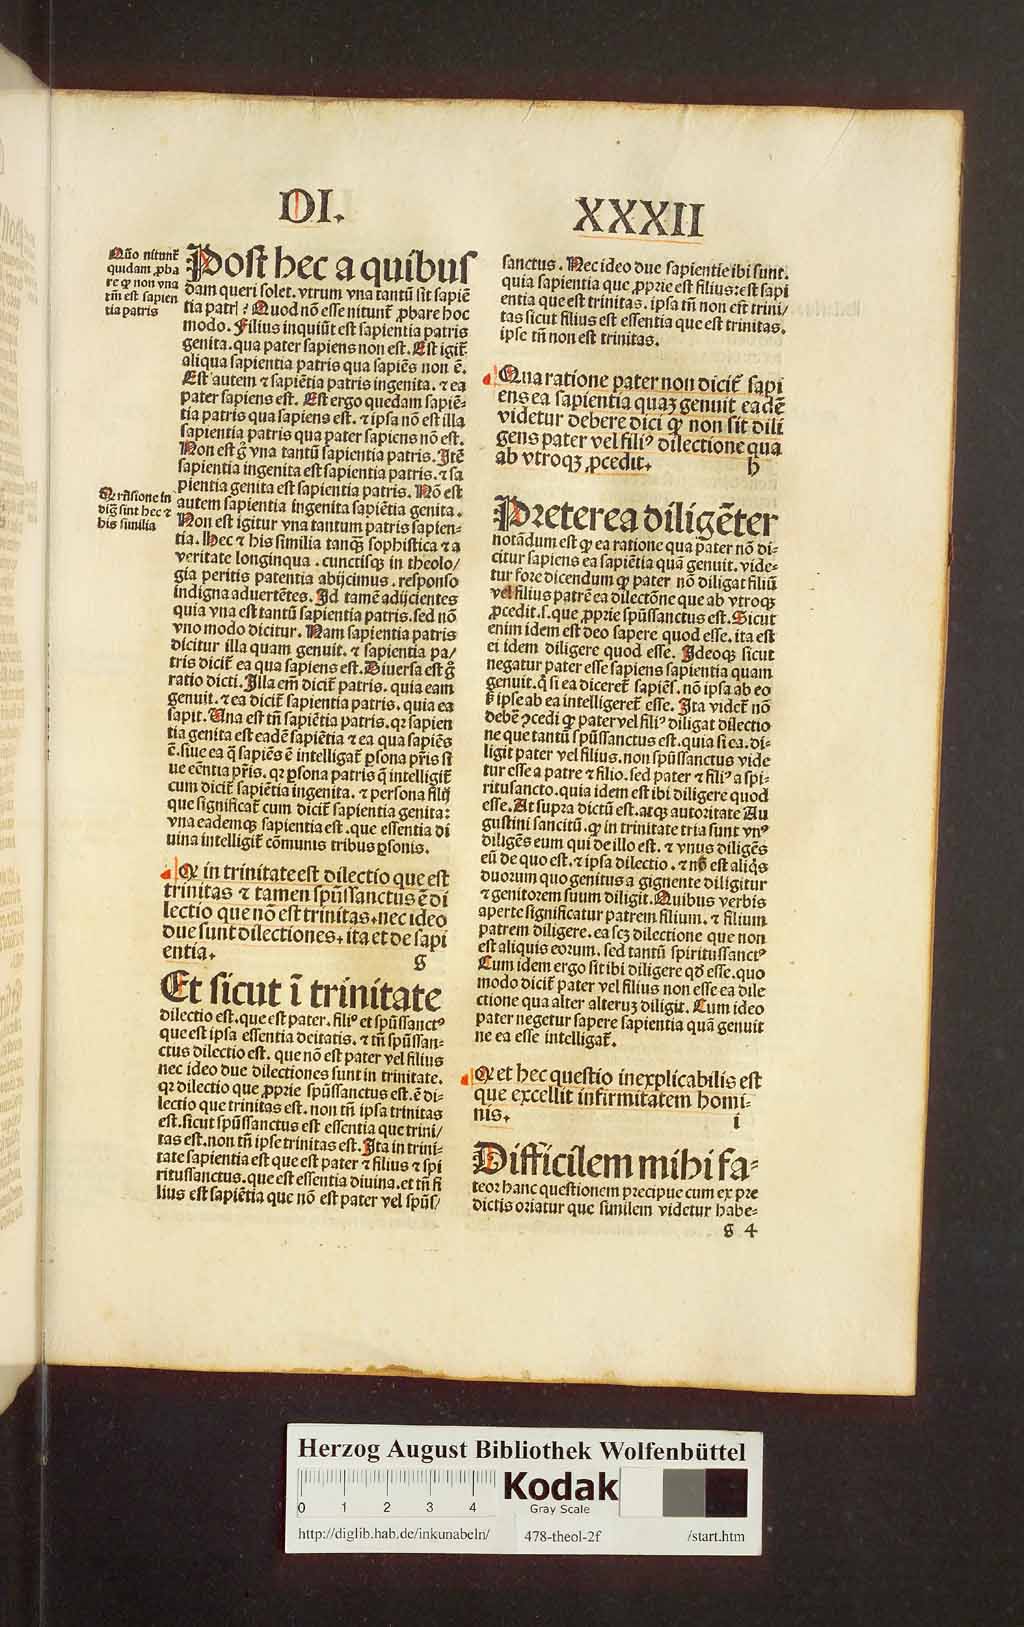 DI.
XXXII
Quõ nitunt̃
quidam ꝓba
re ꝙ non vna
tm̃ est sapien
tia patris
Post hec a quibus
dam queri solet. vtrum vna tantũ sit sapiẽ
tia patr? Quod nõ esse nitunt̃ ꝓbare hoc
modo. Filius inquiũt est sapientia patris
genita. qua pater sapiens non est. Est igit̃
aliqua sapientia patris qua sapiẽs non ẽ.
Est autem ⁊ sapiẽtia patris ingenita. ⁊ ea
pater sapiens est. Est ergo quedam sapiẽ-
tia patris qua sapiens est. ⁊ ipsa nõ est illa
sapientia patris qua pater sapiens nõ est.
Non est g̃ vna tantũ sapientia patris. Itẽ
sapientia ingenita est sapientia patris. ⁊ sa
pientia genita est sapientia patris. Nõ est
Q rasione in
dig̃ sint hec ⁊
his similia
autem sapientia ingenita sapiẽtia genita.
Non est igitur vna tantum patris sapien-
tia. Hec ⁊ his similia tanqꝫ sophistica ⁊ a
veritate longinqua. cunctisqꝫ in theolo/
gia peritis patentia abijcimus. responso
indigna aduertẽtes. Id tamẽ adijcientes
quia vna est tantũ sapientia patris. sed nõ
vno modo dicitur. Nam sapientia patris
dicitur illa quam genuit. ⁊ sapientia pa/
tris dicit̃ ea qua sapiens est. Diuersa est g̃
ratio dicti. Illa em̃ dicit̃ patris. quia eam
genuit. ⁊ ea dicit̃ sapientia patris. quia ea
sapit. Una est tñ sapiẽtia patris. qꝛ sapien
tia genita est eadẽ sapiẽtia ⁊ ea qua sapiẽs
ẽ. siue ea q̃ sapiẽs ẽ intelligat̃ ꝑsona pr̃is si
ue eẽntia pr̃is. qꝛ ꝑsona patris q̃ intelligit̃
cum dicit̃ sapiẽtia ingenita. ⁊ persona filij
que significat̃ cum dicit̃ sapientia genita:
vna eademqꝫ sapientia est. que essentia di
uina intelligit̃ cõmunis tribus ꝑsonis.
Q in trinitate est dilectio que est
trinitas ⁊ tamen spũssanctus ẽ di
lectio que nõ est trinitas. nec ideo
due sunt dilectiones. ita et de sapi
entia.
g
Et sicut ĩ trinitate
dilectio est. que est pater. filiꝰ et spũssanctꝰ
que est ipsa essentia deitatis. ⁊ tñ spũssan-
ctus dilectio est. que nõ est pater vel filius
nec ideo due dilectiones sunt in trinitate.
qꝛ dilectio que ꝓprie spũssanctus est. ẽ di-
lectio que trinitas est. non tñ ipsa trinitas
est. sicut spũssanctus est essentia que trini/
tas est. non tñ ipse trinitas est. Ita in trini-
tate sapientia est que est pater ⁊ filius ⁊ spi
ritussanctus. que est essentia diuina. et tñ fi
lius est sapiẽtia que nõ est pater vel spũs/
sanctus. Nec ideo due sapientie ibi sunt.
quia sapientia que ꝓprie est filius: est sapi
entia que est trinitas. ipsa tñ non est trini/
tas sicut filius est essentia que est trinitas.
ipse tñ non est trinitas.
Qua ratione pater non dicit̃ sapi
ens ea sapientia quaꝫ genuit ea dẽ
videtur debere dici ꝙ non sit dili
gens pater vel filiꝰ dilectione qua
ab vtroqꝫ ꝓcedit.
h
Preterea diligẽter
notãdum est ꝙ ea ratione qua pater nõ di-
citur sapiens ea sapiẽtia quã genuit. vide-
tur fore dicendum ꝙ pater nõ diligat filiũ
vel filius patrẽ ea dilectõne que ab vtroqꝫ
ꝓcedit. s. que ꝓprie spũssanctus est. Sicut
enim idem est deo sapere quod esse. ita est
ei idem diligere quod esse. Ideoqꝫ sicut
negatur pater esse sapiens sapientia quam
genuit. q̃ si ea diceret̃ sapiẽs. nõ ipsa ab eo
s̃ ipse ab ea intelligeret̃ esse. Ita videt̃ nõ
debẽ ꝯcedi ꝙ pater vel filiꝰ diligat dilectio
ne que tantũ spũssanctus est. quia si ea. di-
ligit pater vel filius. non spũssanctus vide
tur esse a patre ⁊ filio. sed pater ⁊ filiꝰ a spi-
ritusancto. quia idem est ibi diligere quod
esse. At supra dictũ est. atqꝫ autoritate Au
gustini sancitũ. ꝙ in trinitate tria sunt vnꝰ
diligẽs eum qui de illo est. ⁊ vnus diligẽs
eũ de quo est. ⁊ ipsa dilectio. ⁊ nõ est aliq̃s
duorum quo genitus a gignente diligitur
⁊ genitorem suum diligit. Quibus verbis
aperte significatur patrem filium. ⁊ filium
patrem diligere. ea scꝫ dilectione que non
est aliquis eorum. sed tantũ spiritussanctꝰ
Cum idem ergo sit ibi diligere qd̃ esse. quo
modo dicit̃ pater vel filius non esse ea dile
ctione qua alter alteruꝫ diligit. Cum ideo
pater negetur sapere sapientia quã genuit
ne ea esse intelligat̃.
Q et hec questio inexplicabilis est
que excellit infirmitatem homi-
nis.
i
Difficilem mihi fa-
teor hanc questionem precipue cum ex pre
dictis oriatur que similem videtur habe-
g 4
Herzog August Bibliothek Wolfenbüttel
0 1 2 3 4
Kodak
Gray Scale
http://diglib.hab.de/inkunabeln/ 478-theol-2f /start.htm